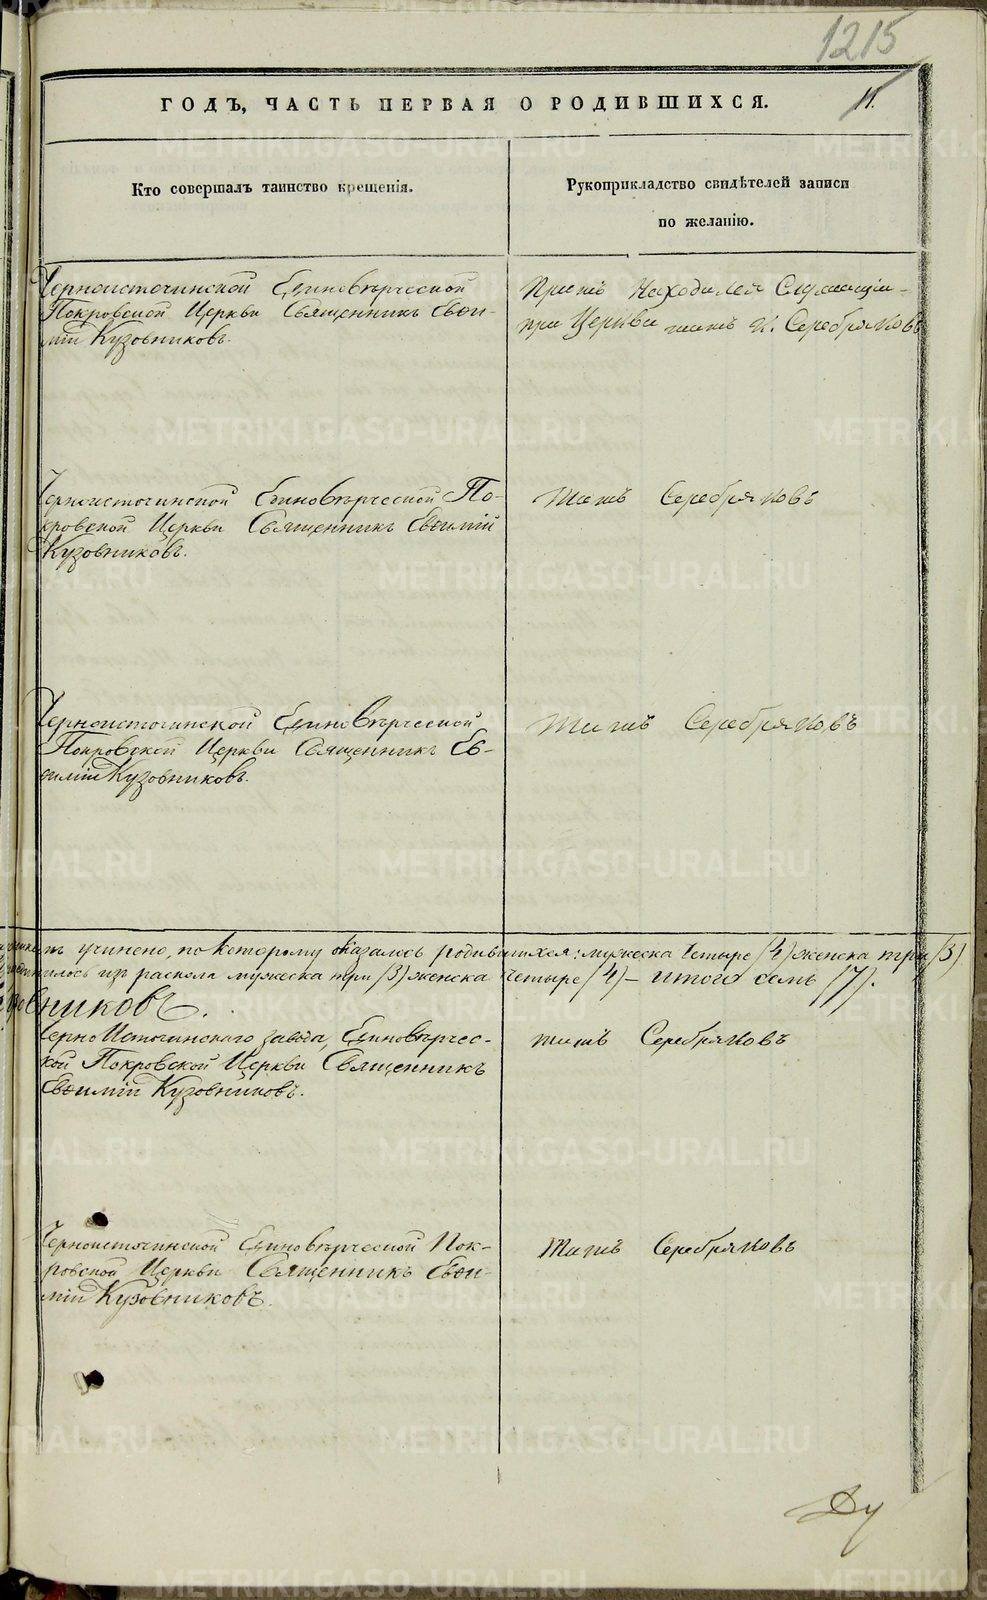 1215
ГОДЪ, ЧАСТЬ ПЕРВАЯ О РОДИВШИХСЯ.
11.
Кто совершалъ таинство крещенія.
Рукоприкладство свидѣтелей записи
по желанію.
Черноисточинской Единовѣрческой
Покровской Церкви Священникъ Евѳи-
мій Кузовниковъ.
При семъ находился Служащій
при Церкви тит. К. Серебряковъ
Черноисточинской Единовѣрческой По-
кровской Церкви Священникъ Евѳимій
Кузовниковъ.
Титъ Серебряковъ
Черноисточинской Единовѣрческой
Покровской Церкви Священникъ Ев-
ѳимій Кузовниковъ.
Титъ Серебряковъ
учинено, по которому оказалось родившихся: мужеска четыре /4/ женска три /3/
изъ раскола мужеска три /3/ женска четыре /4/ – итого семь /7/.
Кузовниковъ.
Черно Источинскаго завода, Единовѣрчес-
кой Покровской Церкви Священникъ
Евѳимій Кузовниковъ.
Титъ Серебряковъ
Черноисточинской Единовѣрческой Пок-
ровской Церкви Священникъ Евѳи-
мій Кузовниковъ.
Титъ Серебряковъ
Ду
METRIKI.GASO-URAL.RU